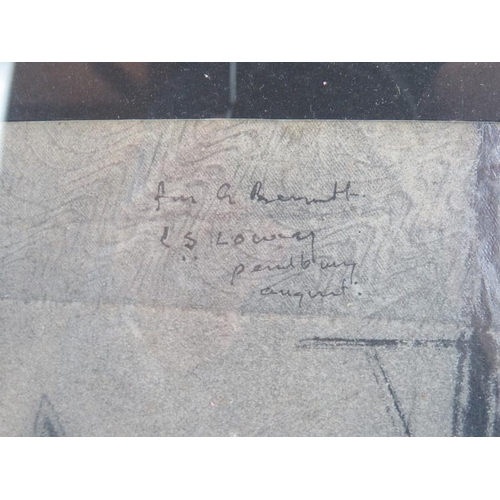 for A Bennett.
L S Lowry
pendlbury
august.